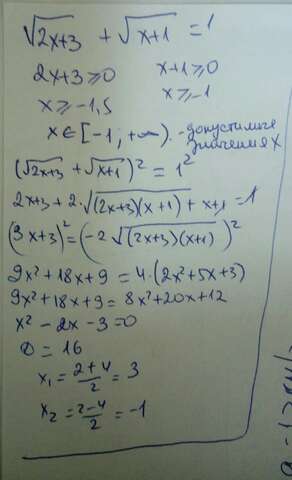 √2x+3 + √x+1 = 1
2x+3 ≥ 0 x+1 ≥ 0
x ≥ -1,5 x ≥ -1
x ∈ [-1; +∞). - допустимые
значения x
(√2x+3 + √x+1)² = 1²
2x+3 + 2·√(2x+3)(x+1) + x+1 = 1
(3x+3)² = (-2√(2x+3)(x+1))²
9x²+18x+9 = 4·(2x²+5x+3)
9x²+18x+9 = 8x²+20x+12
x² - 2x - 3 = 0
D = 16
x₁ = 2+4/2 = 3
x₂ = 2-4/2 = -1